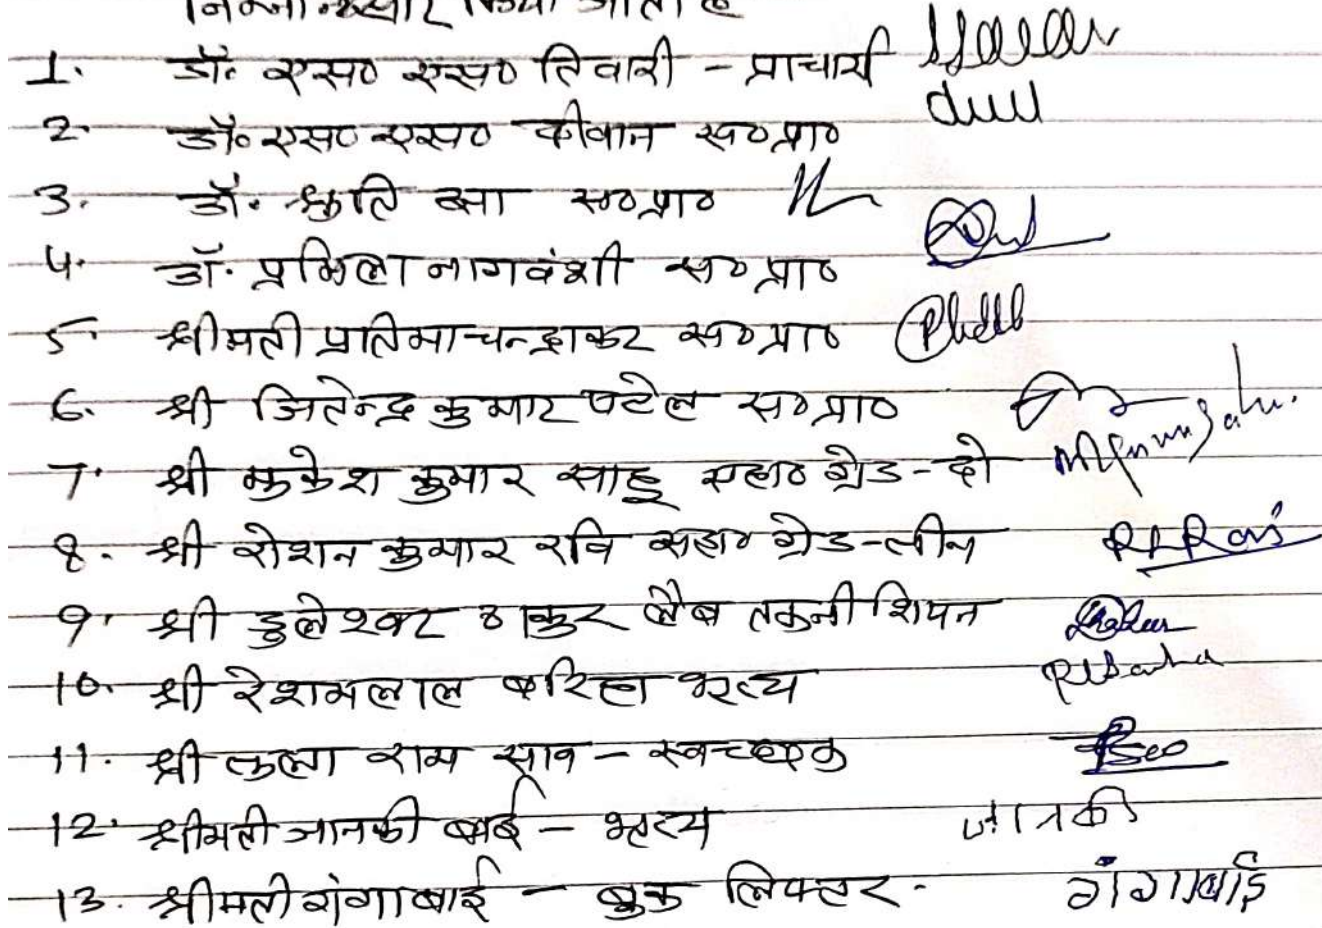 निम्नानुसार किया जाता है
1. डॉ. एस० एस० तिवारी - प्राचार्य
2. डॉ. एस० एस० दीवान स०प्रा०
3. डॉ. श्रुति झा स०प्रा०
4. डॉ. प्रमिला नागवंशी स०प्रा०
5 श्रीमती प्रतिमा चन्द्राकर स०प्रा०
6. श्री जितेन्द्र कुमार पटेल स०प्रा०
7. श्री मुकेश कुमार साहू सहा० ग्रेड-दो
8. श्री रोशन कुमार रवि सहा० ग्रेड-तीन RKRavi
9. श्री डुलेश्वर ठाकुर लैब तकनीशियन
10. श्री रेशमलाल बरिहा भृत्य
11. श्री तुला राम साव - स्वच्छक
12. श्रीमती जानकी बाई - भृत्य जानकी
13. श्रीमती गंगाबाई - बुक लिफ्टर. गंगाबाई